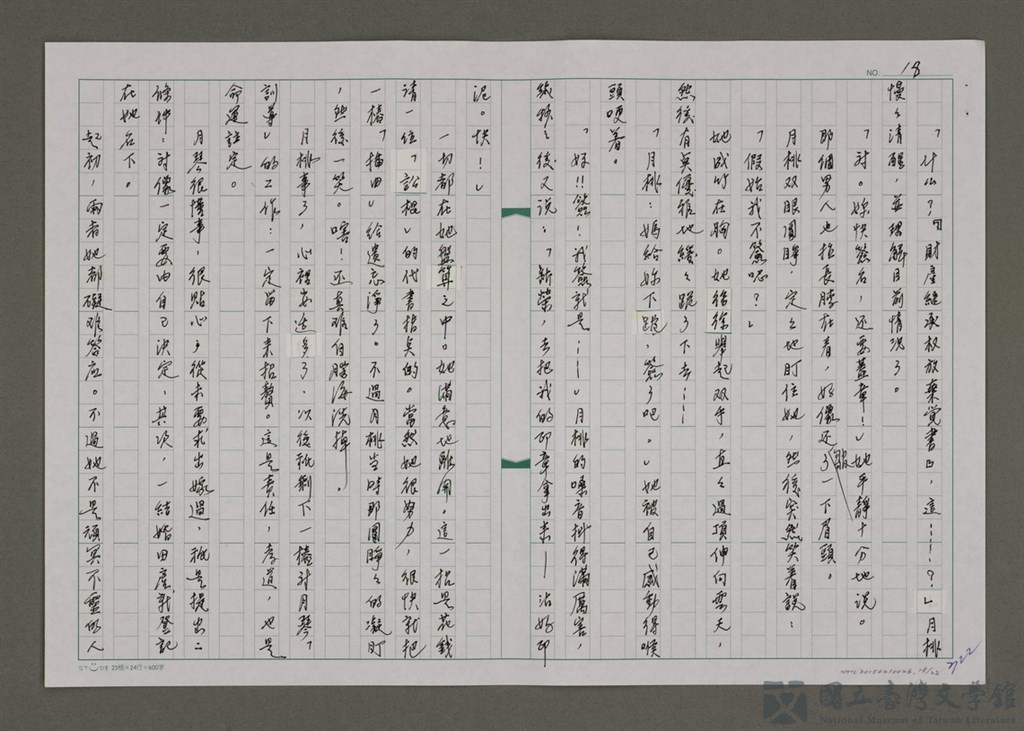 NO. 18
「什么?『財產継承权放棄覚書』,這……?」月桃
慢々清醒,並理解目前情況了。
「对。妳快簽名,还要蓋章!」她平靜十分地说。
那個男人也拉長脖在看,好像还皺了一下眉頭。
月桃双眼圓睜,定々地盯住她,然後突然笑着說:
「假如我不簽呢?」
她成竹在胸。她徐徐舉起双手,直々過頂伸向雲天,
然後有英優雅地緩々跪了下去……
「月桃:媽給妳下跪,簽了吧。」她被自己感動得喉
頭哽着。
「好!!簽!我簽就是……」月桃的嗓音抖得滿厲害,
緘默々後又说:「新榮,去把我的印章拿出来——沾好印
泥。快!」
一切都在她盤算之中。她滿意地離開。這一招是花錢
请一位「訟棍」的代書指臭的。當然她很努力,很快就把
一樁「插曲」給遺忘淨了。不過月桃当時那圓睜々的凝盯
,然後一笑。喀!还真难自腦海洗掉。
月桃事了,心裡安适多了,以後祇剩下一樁对月琴「
訓導」的工作:一定留下来招贅。這是責任,孝道,也是
命運註定。
月琴很懂事,很貼心,從未要求出嫁過,祇是提出二
條件:对像一定要由自己決定,其次,一結婚田產就登記
在她名下。
起初,兩者她都礙难答应。不過她不是頑冥不靈的人
25横×24行=600字
NMTL20150210026 18/22
722
國立臺灣文學館
National Museum of Taiwan Literature